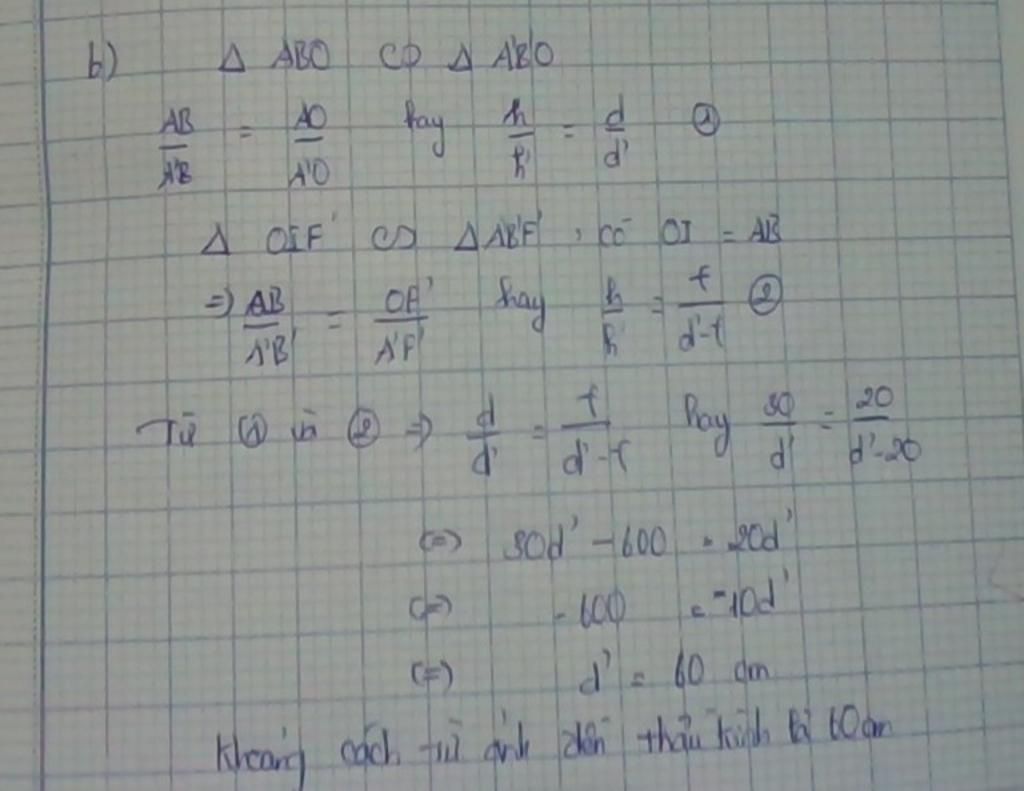 b) Δ ABO ∽ Δ A'B'O
AB/A'B' = AO/A'O hay h/h' = d/d' ①
Δ OIF' ∽ Δ A'B'F', có OI = AB
=> AB/A'B' = OF'/A'F' hay h/h' = f/d'-f ②
Từ ① và ② => d/d' = f/d'-f hay 30/d' = 20/d'-20
(=) 30d' - 600 = 20d'
(=) - 600 = -10d'
(=) d' = 60 cm
Khoảng cách từ ảnh đến thấu kính là 60cm